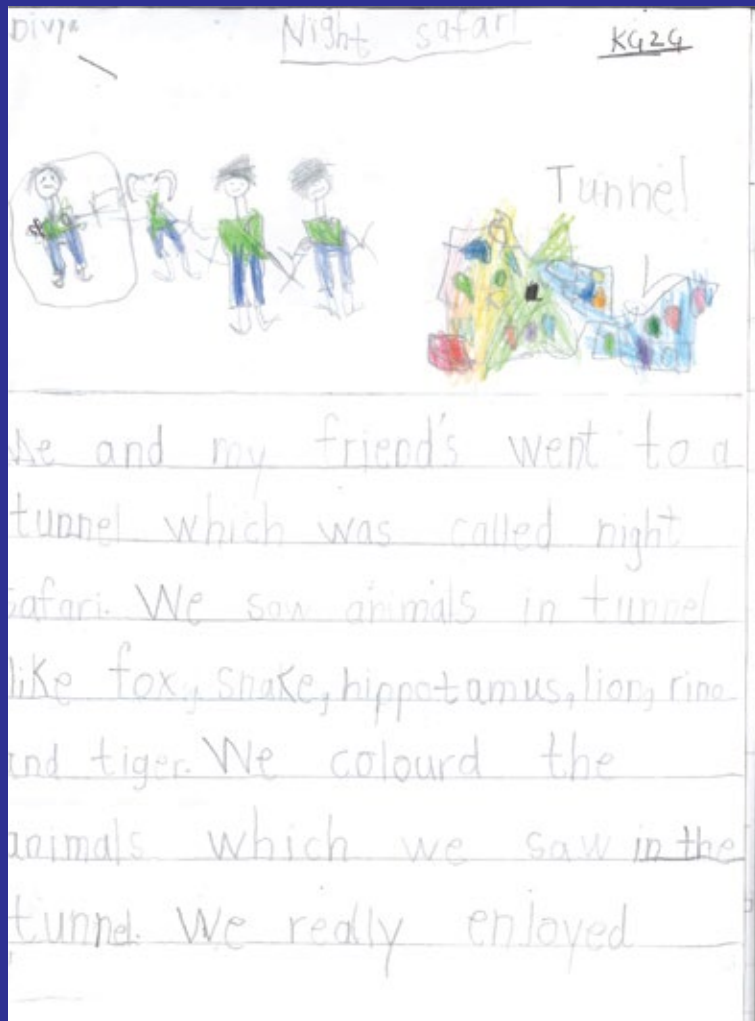 Divya
Night safari
KG2G
Tunnel
Me and my friend's went to a
tunnel which was called night
safari. We saw animals in tunnel
like fox, snake, hippotamus, lion, rino
and tiger. We colourd the
animals which we saw in the
tunnel. We really enjoyed